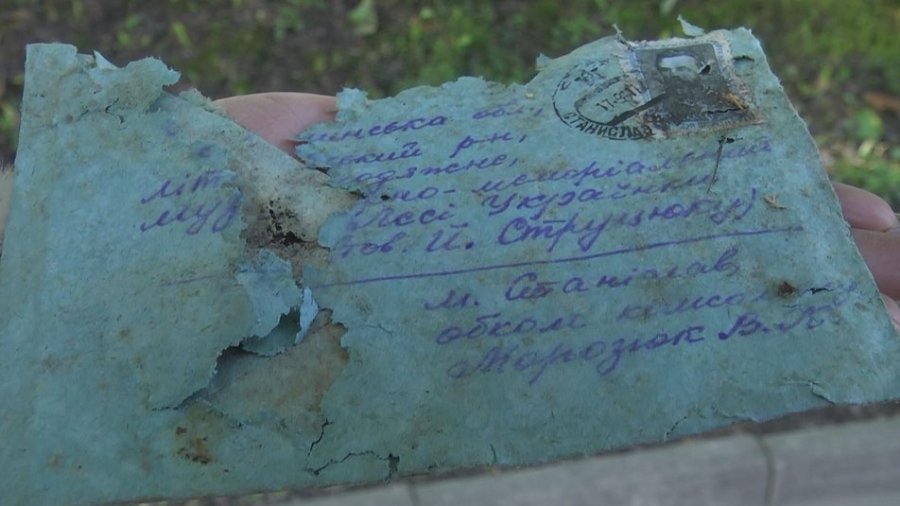 инська обл,
с ский р-н,
одяжне,
літ но-меморіальний
муз Лесі Українки
тов. Й. Струцюку)
м. Станіслав,
обком комсом
Морозюк В. К.
СТАНИСЛАВ